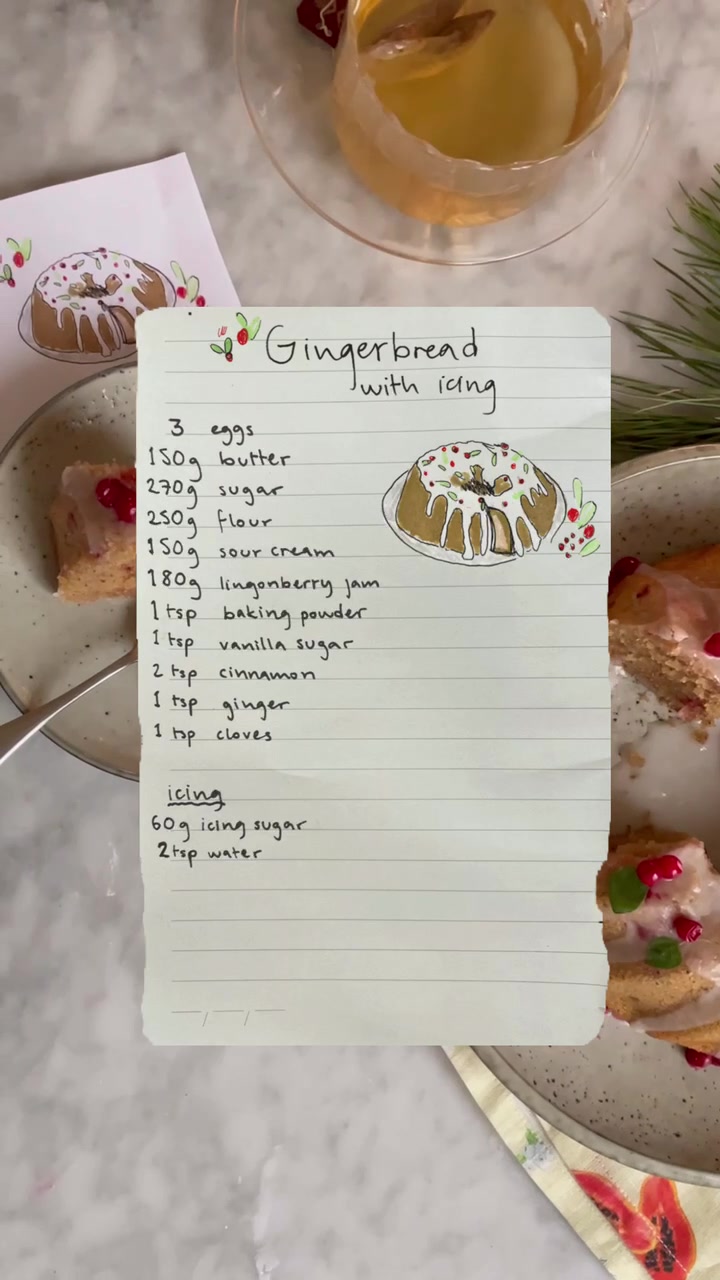 Gingerbread
with icing
3 eggs
150g butter
270g sugar
250g flour
150g sour cream
180g lingonberry jam
1 tsp baking powder
1 tsp vanilla sugar
2 tsp cinnamon
1 tsp ginger
1 tsp cloves
icing
60g icing sugar
2tsp water